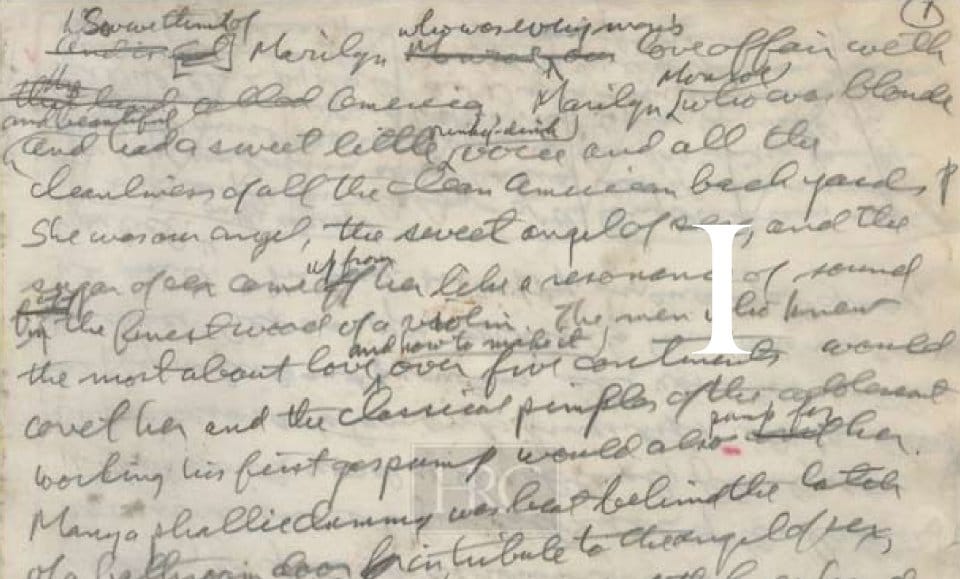 So we think of who was every man's
Marilyn love affair with
the America, Marilyn Monroe who was blonde
and beautiful
and had a sweet little rinky-dink voice and all the
cleanliness of all the clean American backyards
She was our angel, the sweet angel of sex, and the
sugar of sex came up from her like a resonance of sound
in the finest wood of a violin. The men who knew
the most about love and how to make it over five continents would
covet her and the classical pimples of the adolescent
working his first gas pump would also pump for her.
Many a was behind the latch
of a door in tribute to the angel of sex,
I
HRC